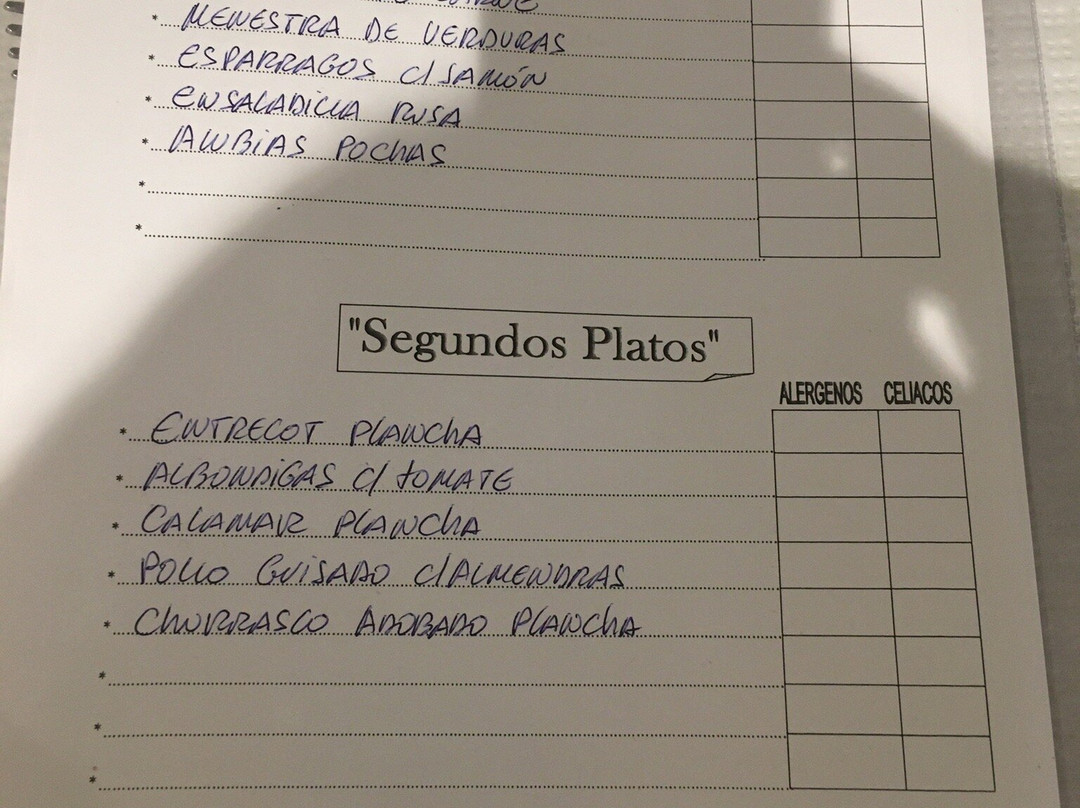 * MENESTRA DE VERDURAS
* ESPARRAGOS C/JAMÓN
* ENSALADILLA RUSA
* ALUBIAS POCHAS
*
*
"Segundos Platos"
ALERGENOS CELIACOS
* ENTRECOT PLANCHA
* ALBONDIGAS C/ TOMATE
* CALAMAR PLANCHA
* POLLO GUISADO C/ALMENDRAS
* CHURRASCO ADOBADO PLANCHA
*
*
*